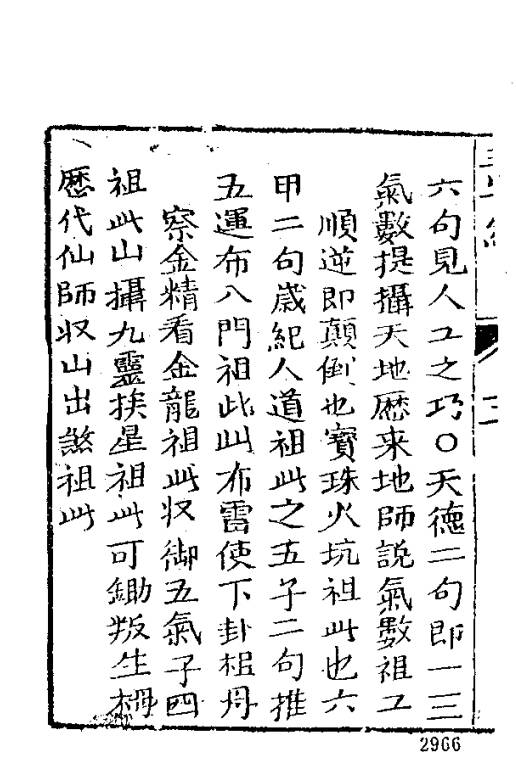 六句見人工之巧○天德二句即一三
氣數提攝天地歴来地師說氣數祖工
順逆即顛倒也寳珠火坑祖此也六
甲二句歲紀人道祖此之五子二句推
五運布八門祖此山布雷使下卦祖丹
察金精看金龍祖此收御五氣子四
祖此山攝九靈挨星祖此可鋤叛生
歴代仙師收山出煞祖此
2966